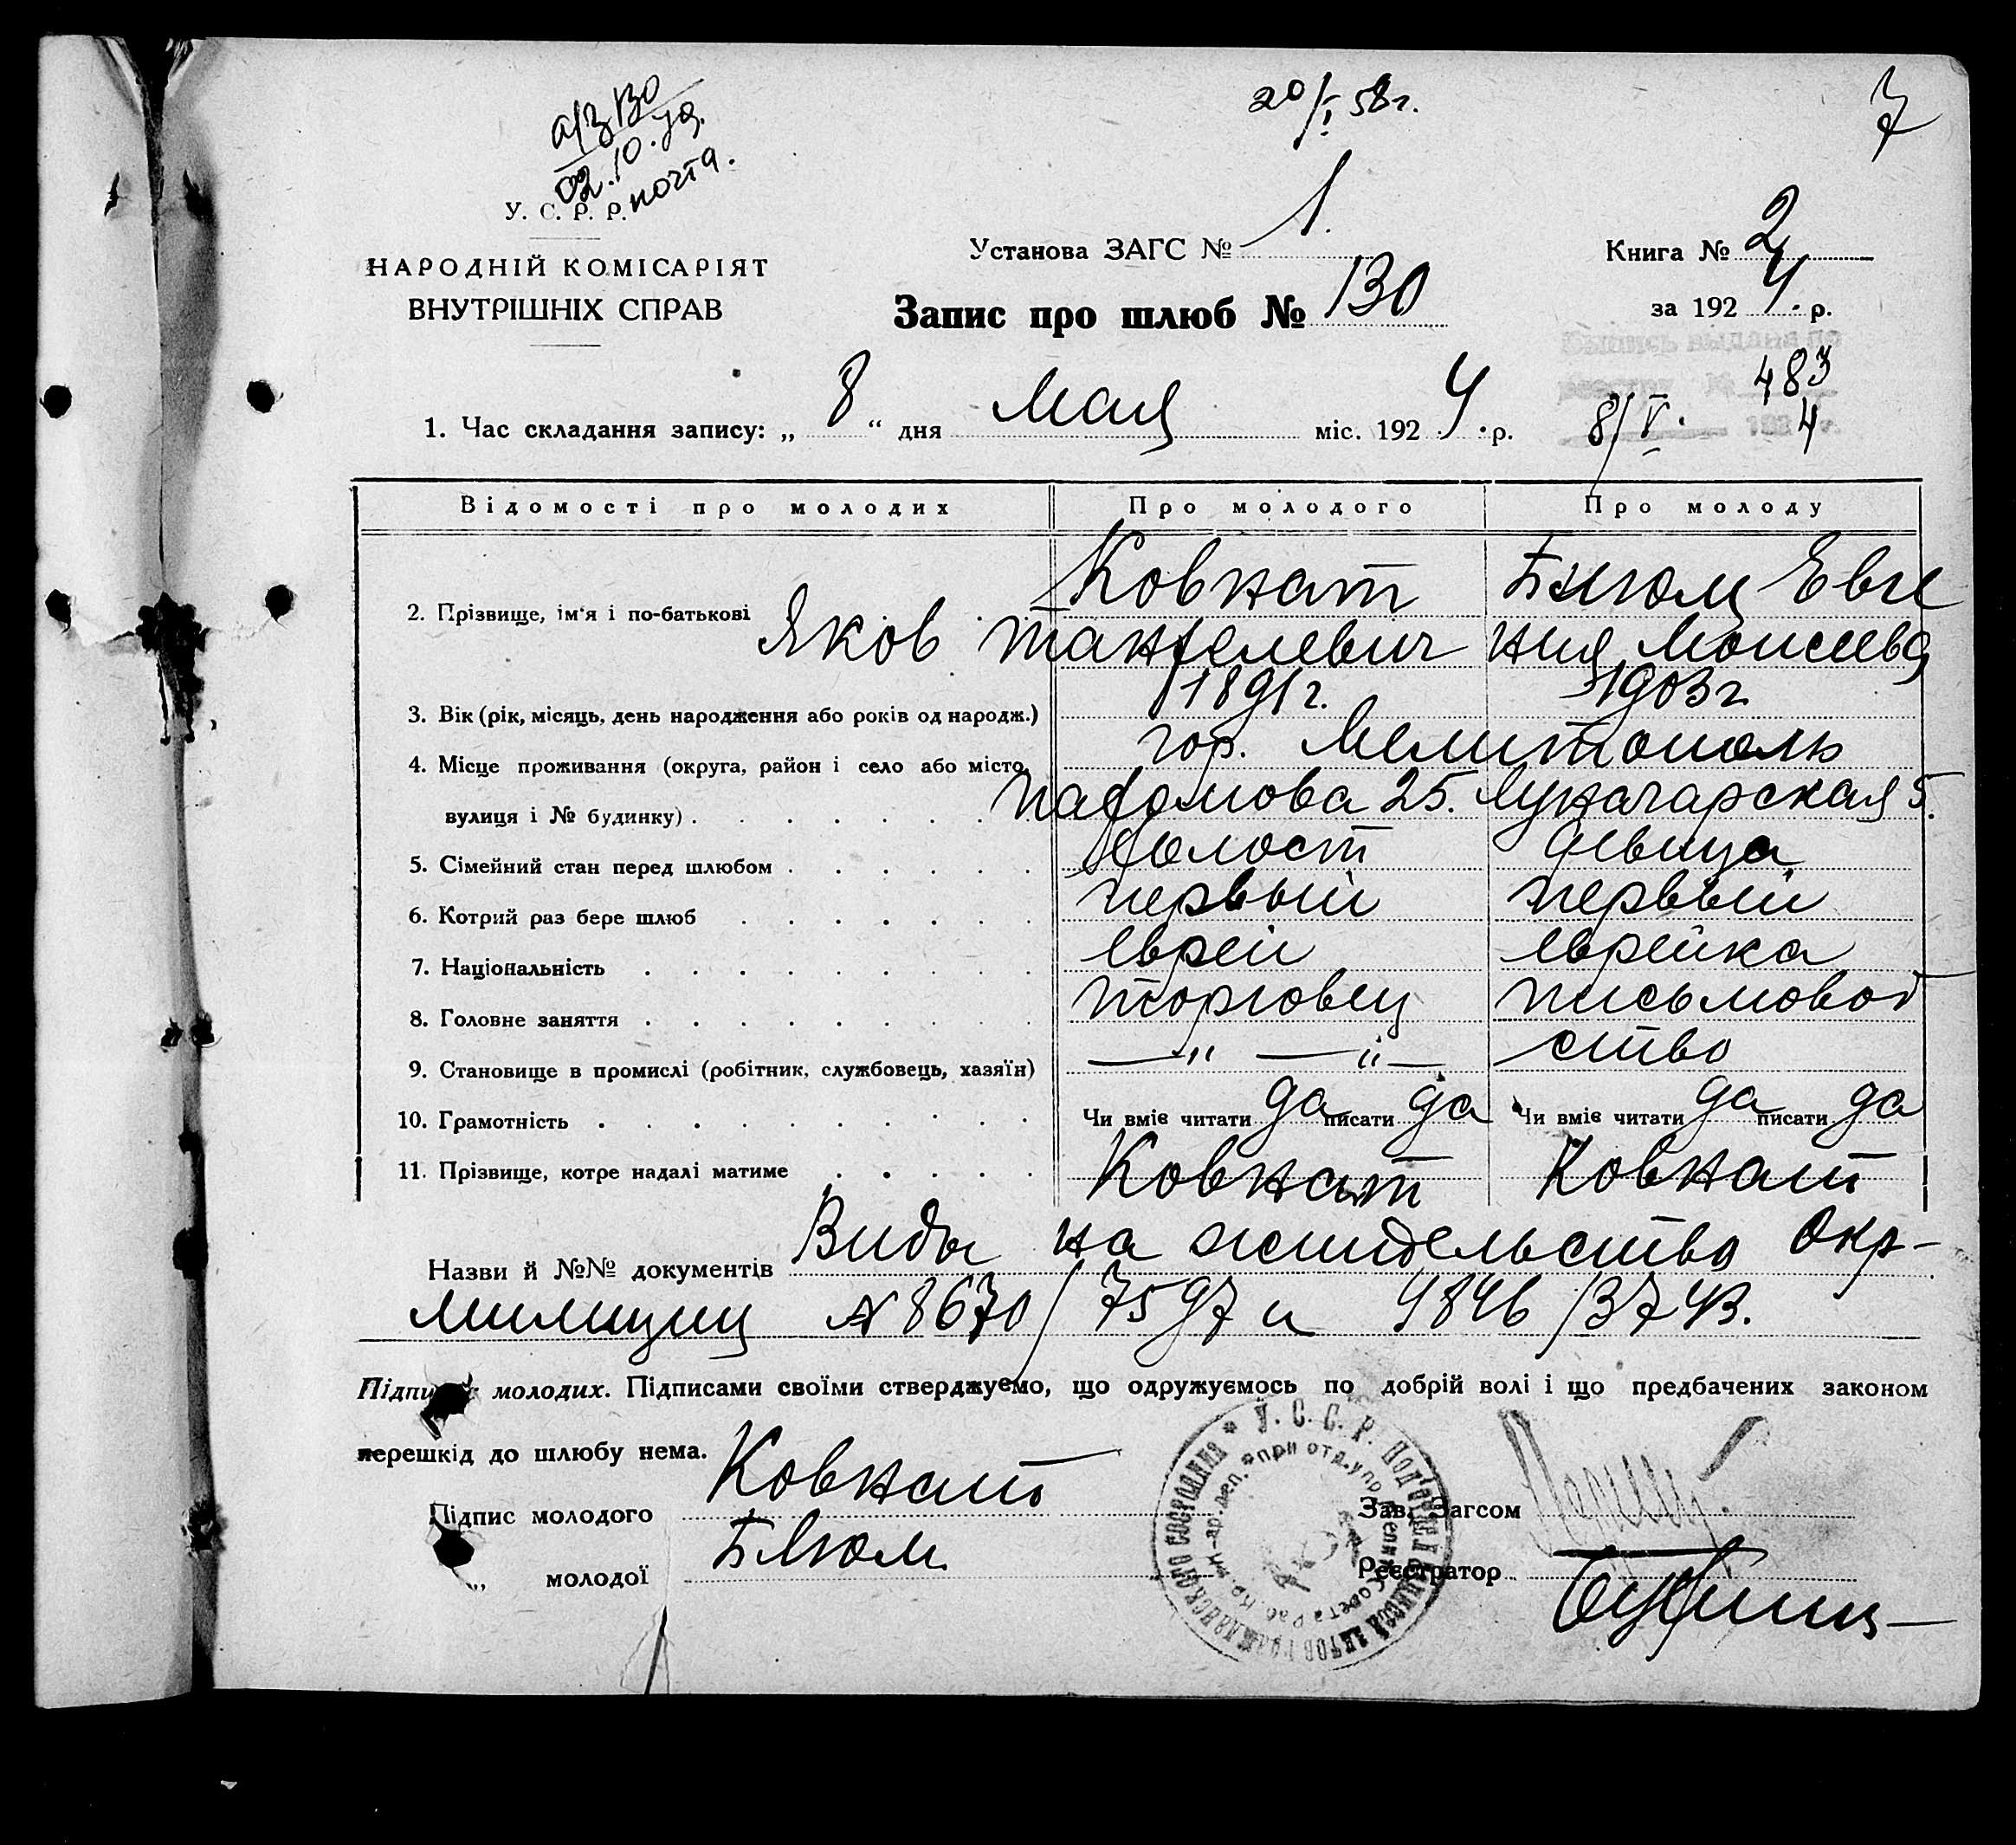 а/з 130
02.10.
почта.
20/I 58г.
7
У. С. Р. Р.
НАРОДНІЙ КОМІСАРІЯТ
ВНУТРІШНІХ СПРАВ
Установа ЗАГС № 1.
Книга № 2
Запис про шлюб № 130
за 1924. р.
Выпись выдана по
реестру № 483
8/V. 1924 г.
1. Час складання запису: „ 8 “ дня Мая міс. 1924. р.
Відомості про молодих Про молодого Про молоду
2. Прізвище, ім'я і по-батькові Ковнат Яков Танхелевич
Блюм Евге
ния Моисеевa
3. Вік (рік, місяць, день народження або років од народж.) 1891г. 1903г
4. Місце проживання (округа, район і село або місто, гор. Мелитополь
вулиця і № будинку) Пахомова 25. Луначарская 5.
5. Сімейний стан перед шлюбом Холост девица
6. Котрий раз бере шлюб первый первый
7. Національність еврей еврейка
8. Головне заняття торговец письмовод
9. Становище в промислі (робітник, службовець, хазяїн) — „ — „ — ство
10. Грамотність Чи вміє читати да писати да Чи вміє читати да писати да
11. Прізвище, котре надалі матиме Ковнат Ковнат
Назви й №№ документів Виды на жительство Окр-
милиции № 8670/7597 и 4846/3743.
Підписи молодих. Підписами своїми стверджуємо, що одружуємось по добрій волі і що предбачених законом
перешкід до шлюбу нема.
Підпис молодого Ковнат
„ молодої Блюм
Зав. Загсом
Реєстратор
У. С. С. Р. Под'отдел записей актов гражданского состояния